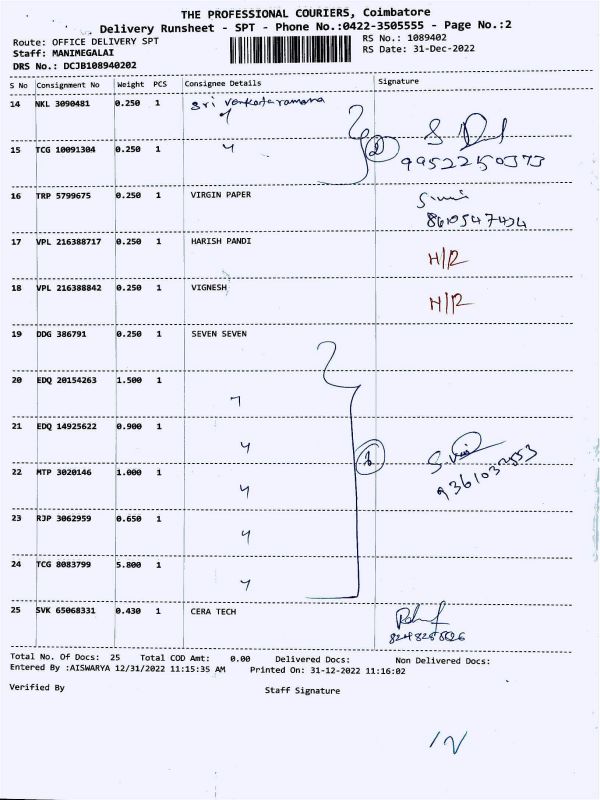 THE PROFESSIONAL COURIERS, Coimbatore
Delivery Runsheet - SPT - Phone No.:0422-3505555 - Page No.:2
Route: OFFICE DELIVERY SPT
RS No.: 1089402
Staff: MANIMEGALAI
RS Date: 31-Dec-2022
DRS No.: DCJB108940202
S No Consignment No Weight PCS Consignee Details Signature
14 NKL 3090481 0.250 1 Sri Venkataramana
15 TCG 10091304 0.250 1 " 2
9952250373
16 TRP 5799675 0.250 1 VIRGIN PAPER
8610547424
17 VPL 216388717 0.250 1 HARISH PANDI H/R
18 VPL 216388842 0.250 1 VIGNESH H/R
19 DDG 386791 0.250 1 SEVEN SEVEN
20 EDQ 20154263 1.500 1 "
21 EDQ 14925622 0.900 1 "
22 MTP 3020146 1.000 1 "
23 RJP 3062959 0.650 1 "
24 TCG 8083799 5.800 1 "
25 SVK 65068331 0.430 1 CERA TECH
Total No. Of Docs: 25 Total COD Amt: 0.00 Delivered Docs: Non Delivered Docs:
Entered By :AISWARYA 12/31/2022 11:15:35 AM Printed On: 31-12-2022 11:16:02
Verified By Staff Signature